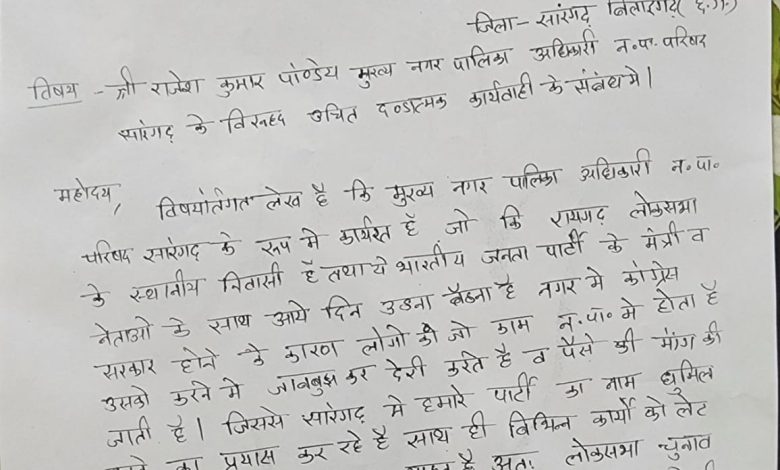 जिला - सारंगढ़ बिलाईगढ़ (छ.ग.)
विषय - श्री राजेश कुमार पांण्डेय मुख्य नगर पालिका अधिकारी न.पा. परिषद
सारंगढ़ के विरूद्ध उचित दण्डात्मक कार्यवाही के संबंध मे।
महोदय,
विषयांर्तगत लेख है कि मुख्य नगर पालिका अधिकारी न.पा.
परिषद सारंगढ़ के रूप मे कार्यरत हैं जो कि रायगढ़ लोकसभा
के स्थानीय निवासी हैं तथा ये भारतीय जनता पार्टी के मंत्री व
नेताओ के साथ आये दिन उठना बैठना है नगर मे कांग्रेस
सरकार होने के कारण लोगो की जो काम न.पा. मे होता है
उसको करने मे जानबुझ कर देरी करते है व पैसे की मांग की
जाती है। जिससे सारंगढ़ मे हमारे पार्टी का नाम धुमिल
का प्रयास कर रहे है साथ ही विभिन्न कार्यो को लेट
है अतः लोकसभा चुनाव